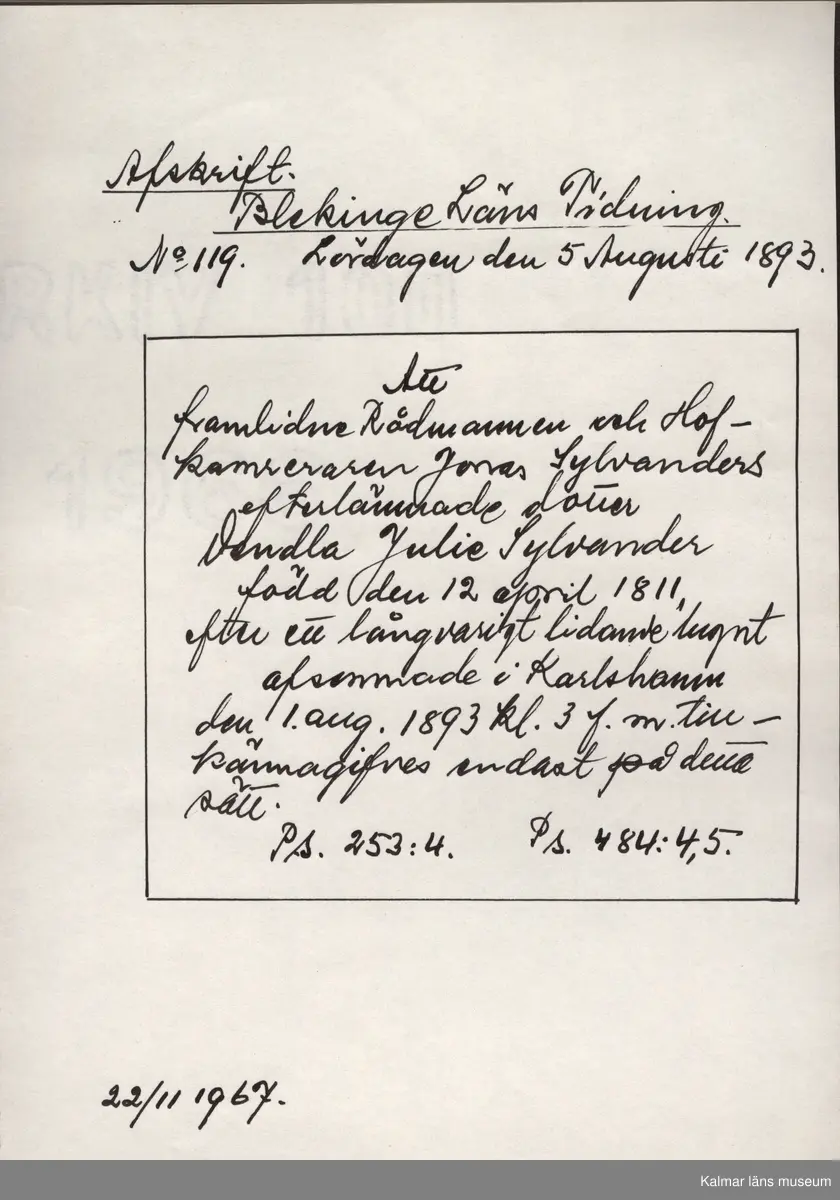 Afskrift.
Blekinge Läns Tidning.
No. 119. Lördagen den 5 Augusti 1893.
Att
framlidne Rådmannen och Hof-
kamreraren Jonas Sylvanders
efterlämnade dotter
Vendla Julie Sylvander
född den 12 april 1811,
efter ett långvarigt lidande lugnt
afsomnade i Karlshamn
den 1. aug. 1893 kl. 3 f. m. till-
kännagifves endast på detta
sätt.
Ps. 253:4. Ps. 484:4,5.
22/11 1967.
Kalmar läns museum